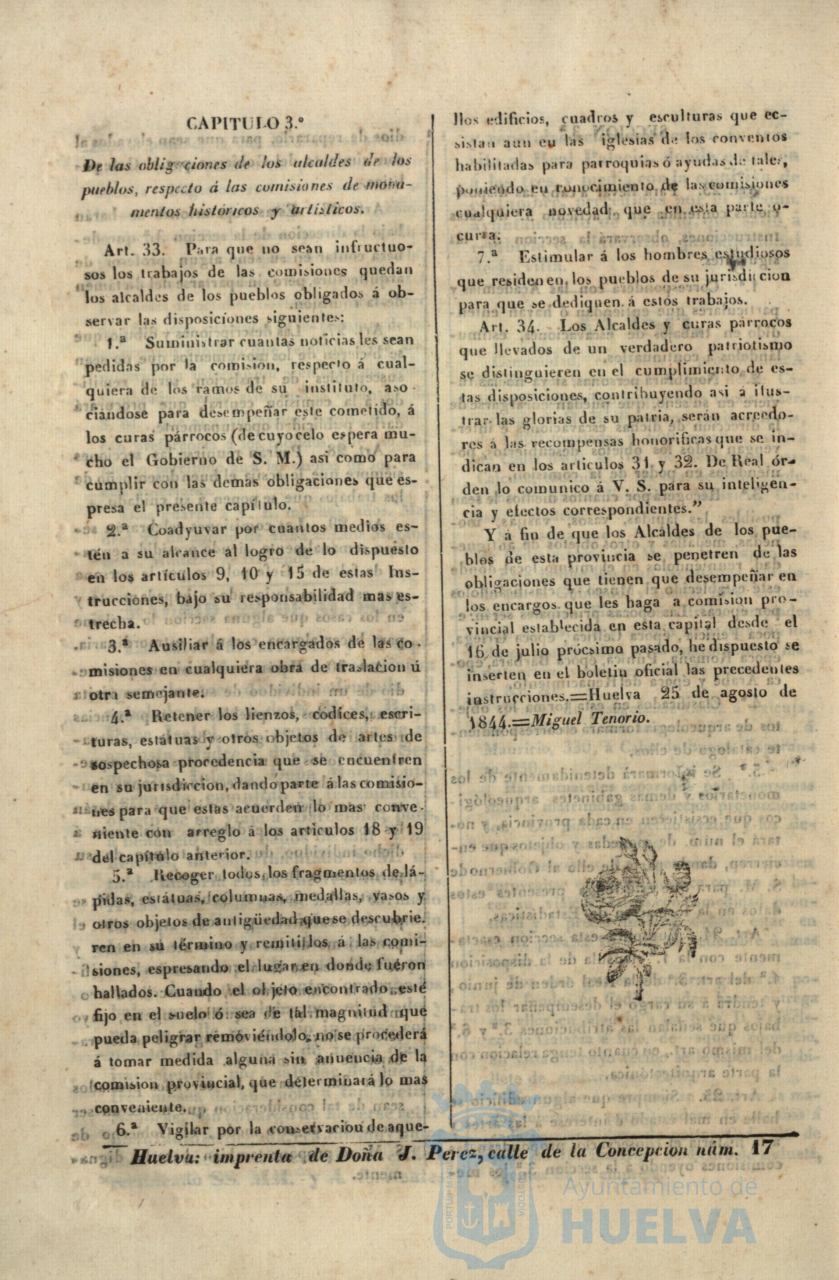 CAPITULO 3.º
De las obligaciones de los alcaldes de los
pueblos, respecto á las comisiones de monu-
mentos históricos y artísticos.
Art. 33. Para que no sean infructuo-
sos los trabajos de las comisiones quedan
los alcaldes de los pueblos obligados á ob-
servar las disposiciones siguientes:
1.ª Suministrar cuantas noticias les sean
pedidas por la comision, respecto á cual-
quiera de los ramos de su instituto, aso-
ciándose para desempeñar este cometido, á
los curas párrocos (de cuyo celo espera mu-
cho el Gobierno de S. M.) asi como para
cumplir con las demas obligaciones que es-
presa el presente capítulo.
2.ª Coadyuvar por cuantos medios es-
tén a su alcance al logro de lo dispuesto
en los artículos 9, 10 y 15 de estas Ins-
trucciones, bajo su responsabilidad mas es-
trecha.
3.ª Ausiliar á los encargados de las co-
misiones en cualquiera obra de traslacion ú
otra semejante.
4.ª Retener los lienzos, codíces, escri-
turas, estátuas y otros objetos de artes de
sospechosa procedencia que se encuentren
en su jurisdiccion, dando parte á las comisio-
nes para que estas acuerden lo mas conve-
niente con arreglo á los articulos 18 y 19
del capítulo anterior.
5.ª Recoger todos los fragmentos de lá-
pidas, estátuas, columnas, medallas, vasos y
otros objetos de antigüedad que se descubrie-
ren en su término y remitirlos á las comi-
siones, espresando el lugar en donde fueron
hallados. Cuando el objeto encontrado esté
fijo en el suelo ó sea de tal magnitud que
pueda peligrar removiéndolo, no se procederá
á tomar medida alguna sin anuencia de la
comision provincial, que determinará lo mas
conveniente.
6.ª Vigilar por la conservacion de aque-
llos edificios, cuadros y esculturas que ec-
sistan aun en las iglesias de los conventos
habilitadas para parroquias ó ayudas de tales,
poniendo en conocimiento de las comisiones
cualquiera novedad que en esta parte o-
curra.
7.ª Estimular á los hombres estudiosos
que residen en los pueblos de su jurisdiccion
para que se dediquen á estos trabajos.
Art. 34. Los Alcaldes y curas párrocos
que llevados de un verdadero patriotismo
se distinguieren en el cumplimiento de es-
tas disposiciones, contribuyendo asi á ilus-
trar las glorias de su patria, serán acreedo-
res á las recompensas honorificas que se in-
dican en los articulos 31 y 32. De Real ór-
den lo comunico á V. S. para su inteligen-
cia y efectos correspondientes."
Y á fin de que los Alcaldes de los pue-
blos de esta provincia se penetren de las
obligaciones que tienen que desempeñar en
los encargos que les haga a comision pro-
vincial establecida en esta capital desde el
16 de julio prócsimo pasado, he dispuesto se
inserten en el boletin oficial las precedentes
instrucciones.=Huelva 25 de agosto de
1844.=Miguel Tenorio.
Huelva: imprenta de Doña J. Perez, calle de la Concepcion núm. 17
Ayuntamiento de
HUELVA